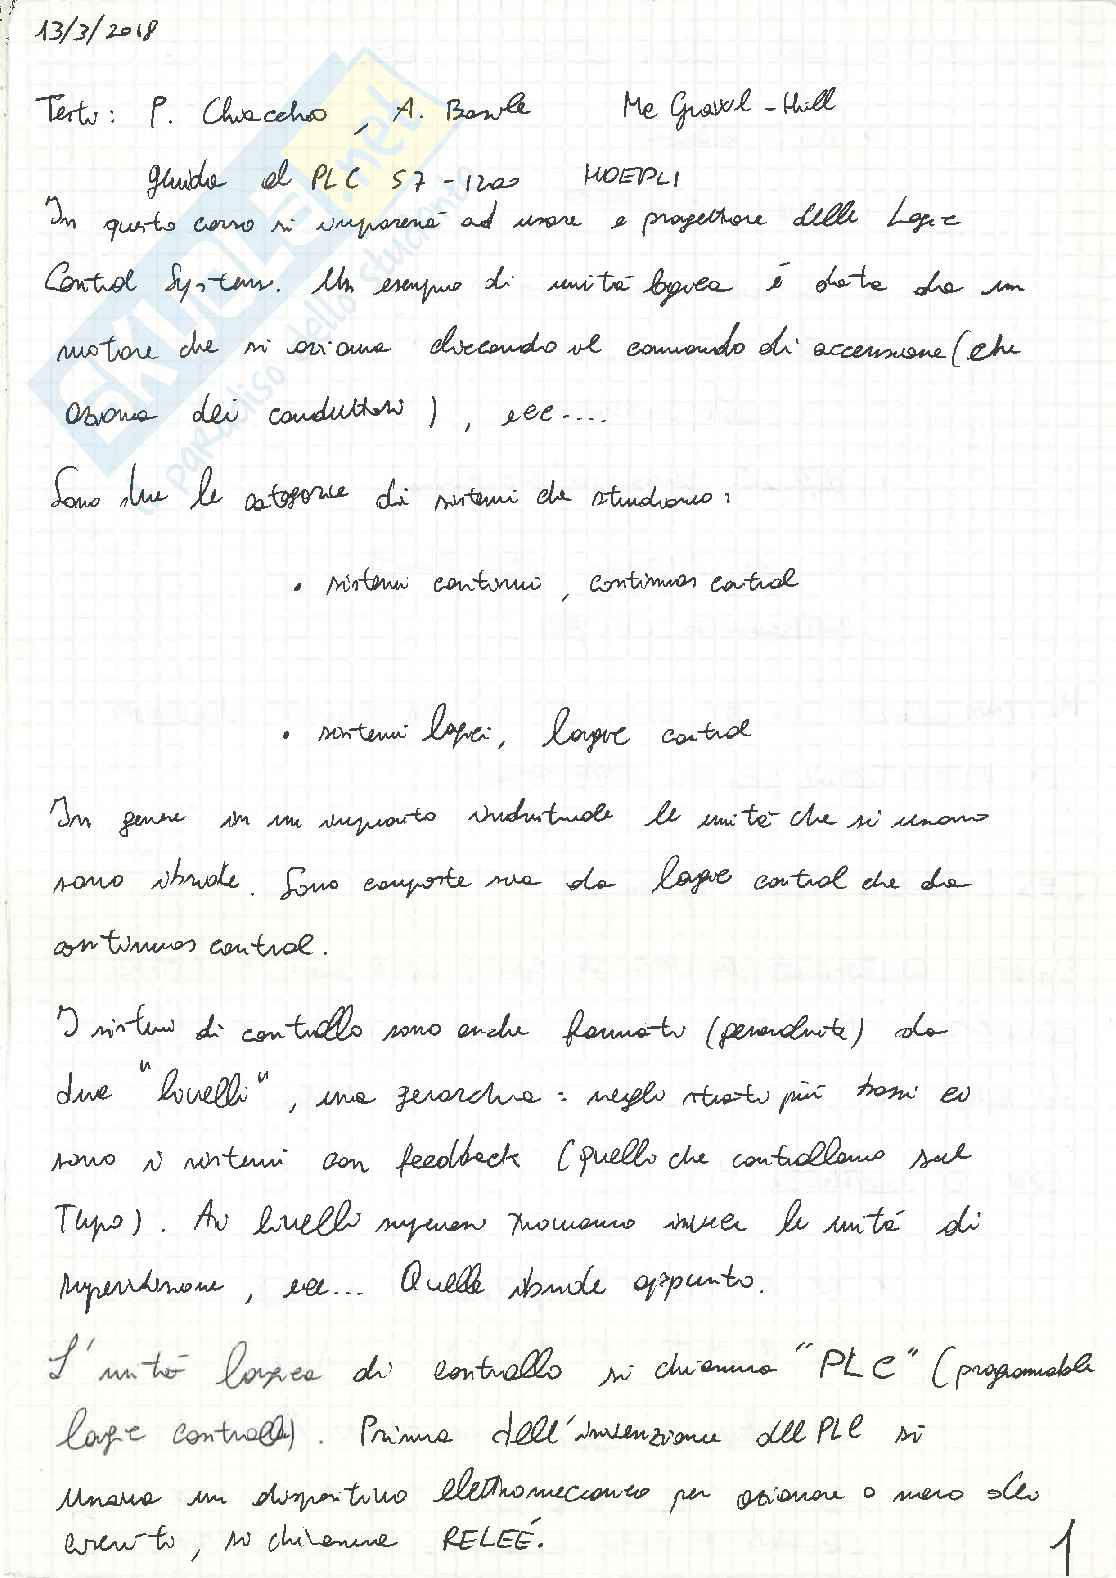 13/3/2018
Testo: P. Chiacchio, A. Basile Mc Grawl-Hill
guida al PLC S7-1200 HOEPLI
In questo corso si imparerà ad usare e progettare delle Logic
Control System. Un esempio di unità logica è data da un
motore che si aziona cliccando il comando di accensione (che
aziona dei conduttori), ecc....
Sono due le categorie di sistemi che studiamo:
• sistemi continui, continuos control
• sistemi logici, logic control
In genere in un impianto industriale le unità che si usano
sono ibride. Sono composte sia da logic control che da
continuos control.
I sistemi di controllo sono anche formati (gerarchite) da
due "livelli", una gerarchia: negli strati più bassi ci
sono i sistemi con feedback (quello che controllano sul
Tipo). Ai livelli superiori troviamo invece le unità di
supervisione, ecc... Quelle ibride appunto.
L'unità logica di controllo si chiama "PLC" (programmable
logic controller). Prima dell'invenzione del PLC si
usava un dispositivo elettromeccanico per azionare o meno
circuito, si chiama RELEÉ.
1
SKUOLA.net
paradiso dello studente